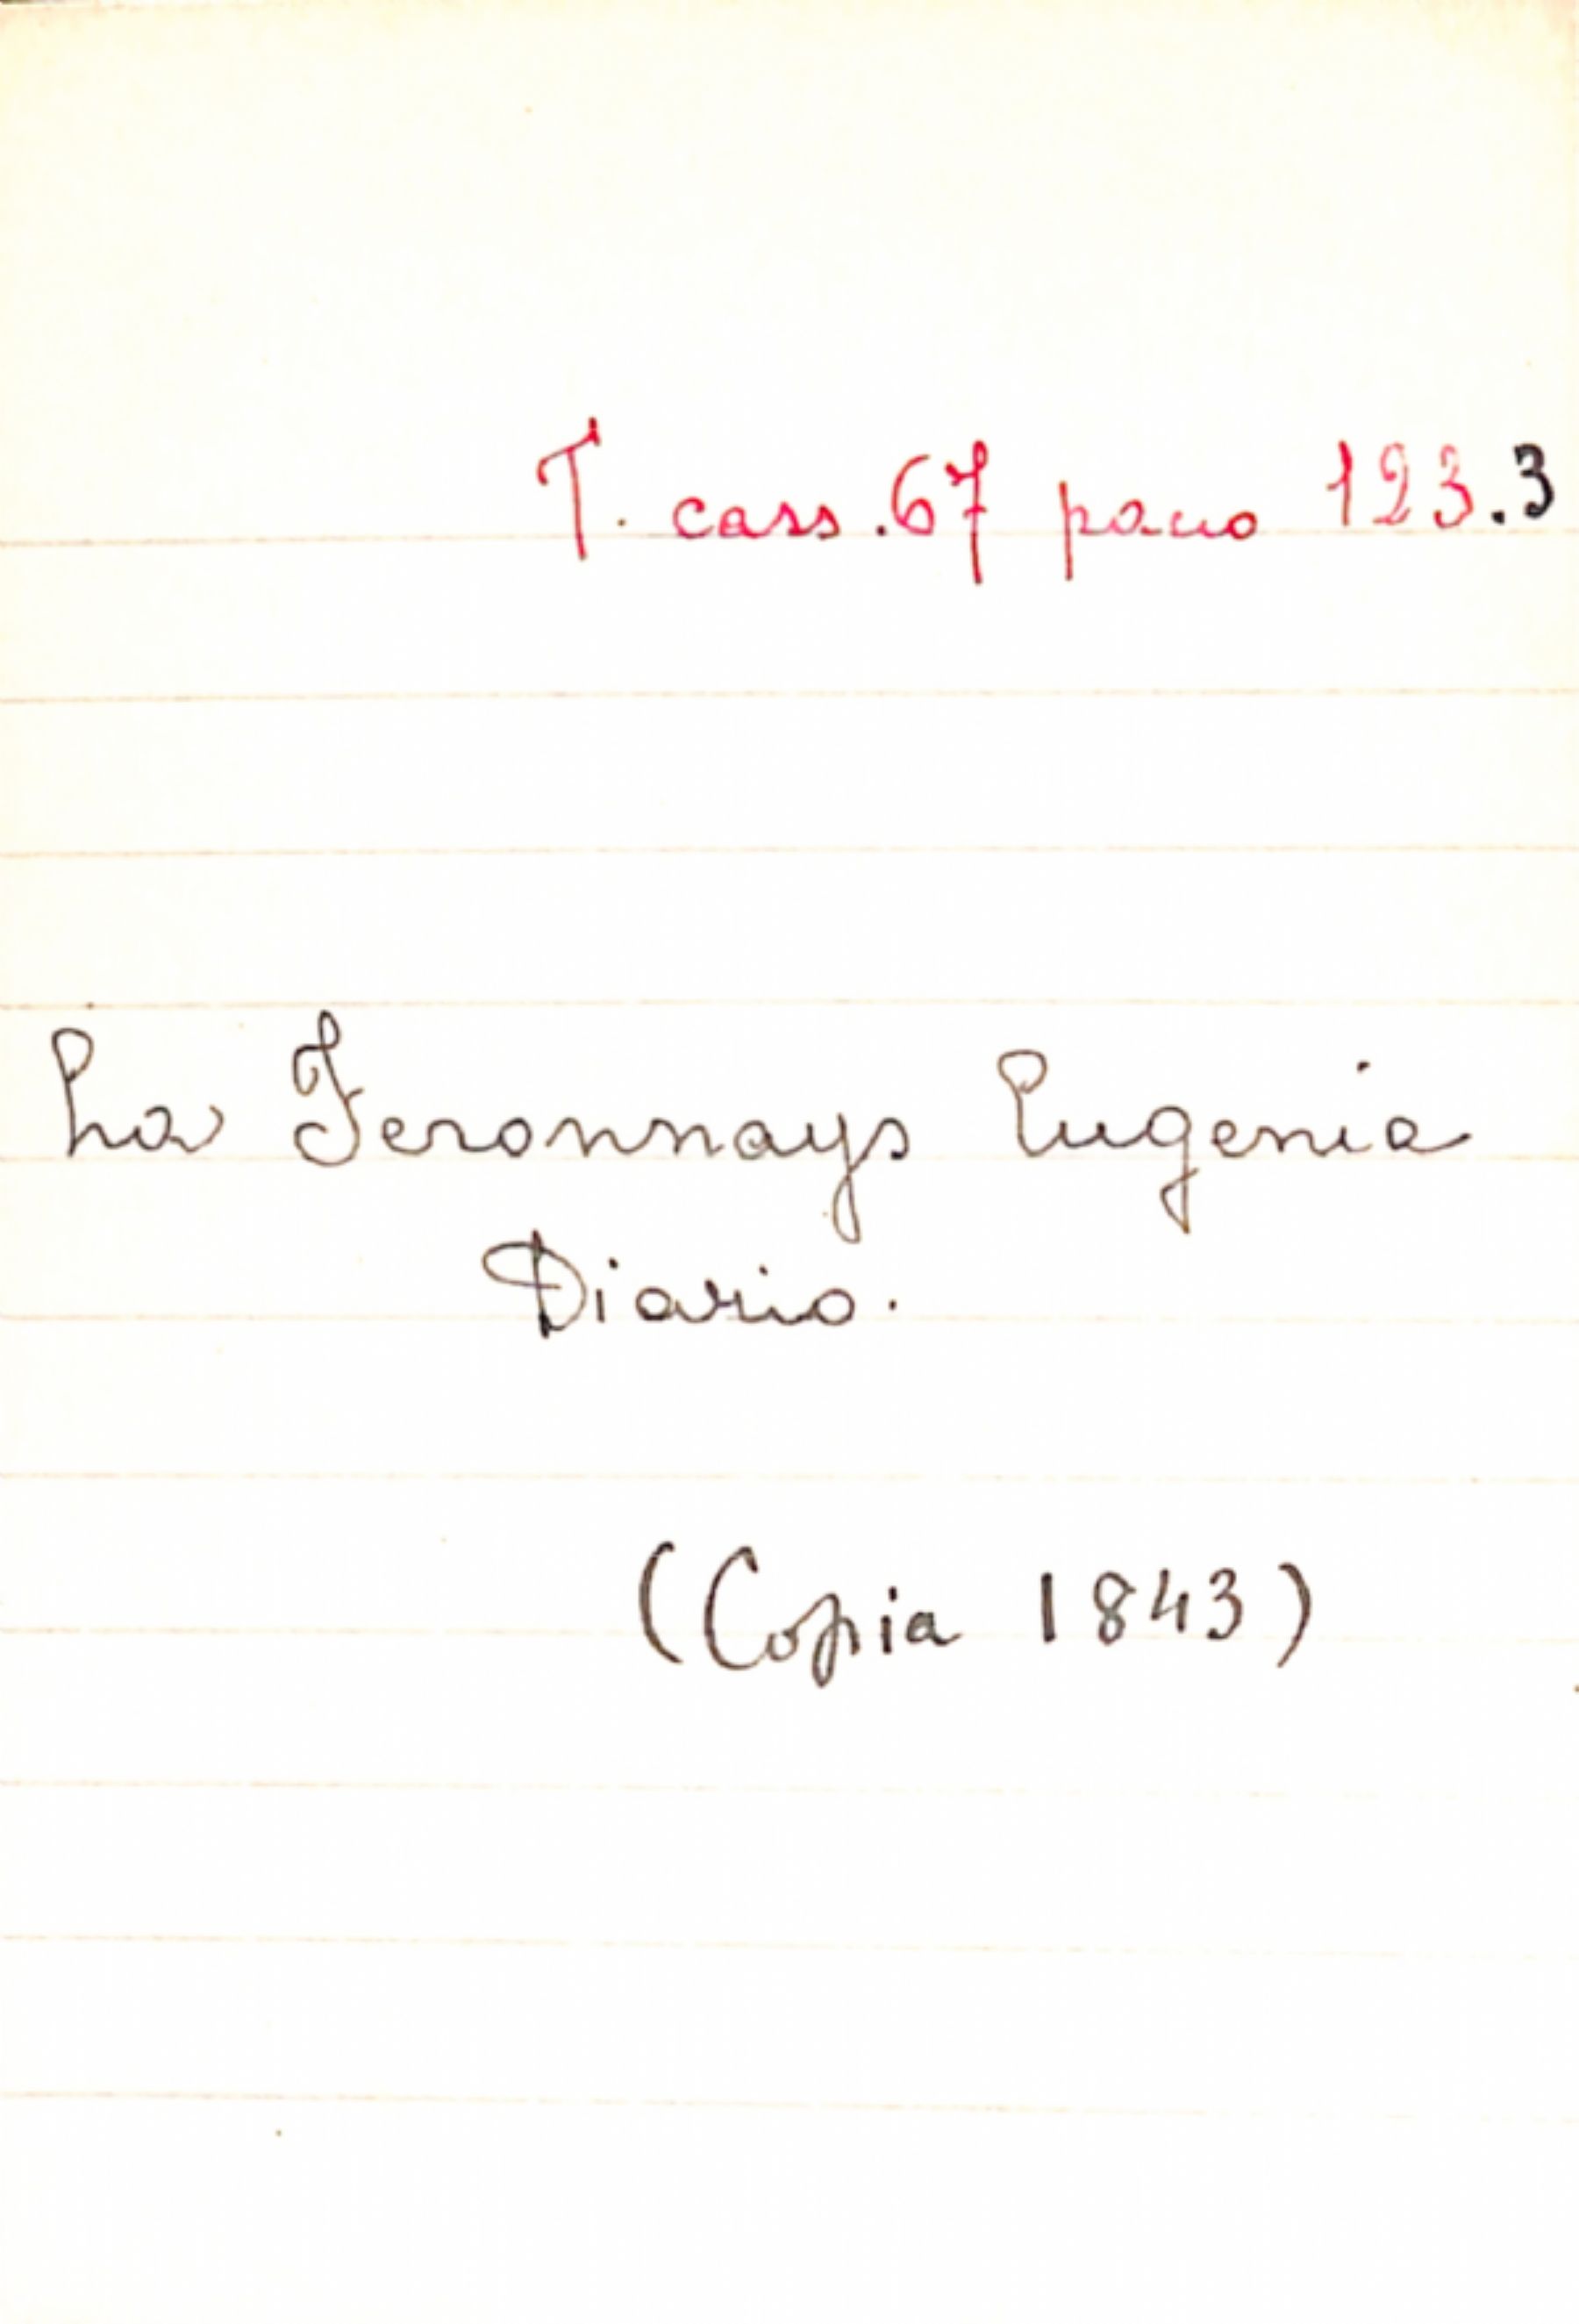 T. cass. 67 pacco 123.3
La Feronnays Eugenia
Diario.
(Copia 1843)